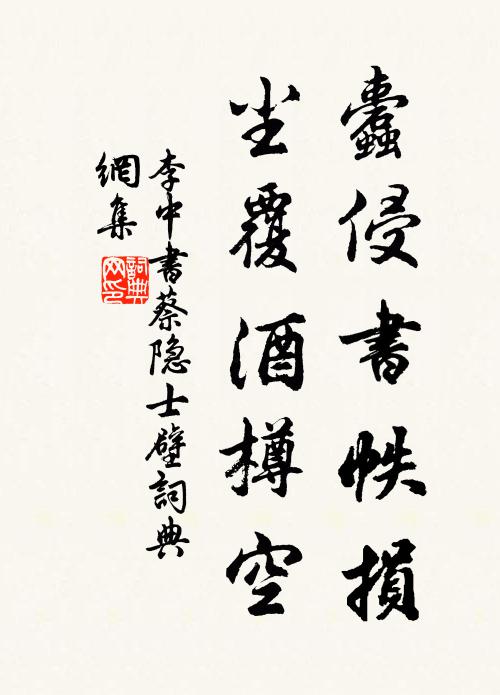 蠹侵書帙損
尘覆酒樽空
李中書蔡隐士壁詞典
網集
詞典
网印